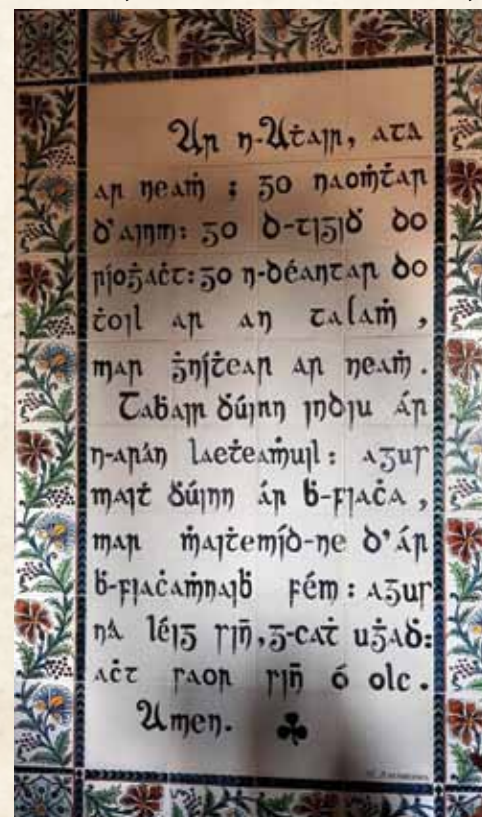 Ár n-Aṫair, atá
ar neaṁ ; go naoṁṫar
d'ainm: go d-tigiḋ do
ríoġaċt: go n-déantar do
ṫoil ar an talaṁ ,
mar ġníṫear ar neaṁ .
Taḃair ḋúinn indiu ár
n-arán laeṫeaṁuil : agus
maiṫ ḋúinn ár ḃ-fiaċa ,
mar ṁaiṫemíd-ne d'ár
ḃ-fiaċaṁnaiḃ féin : agus
ná léig sin̄ , g-caṫ uġaḋ:
aċt saor sin̄ ó olc .
Amen. ♣